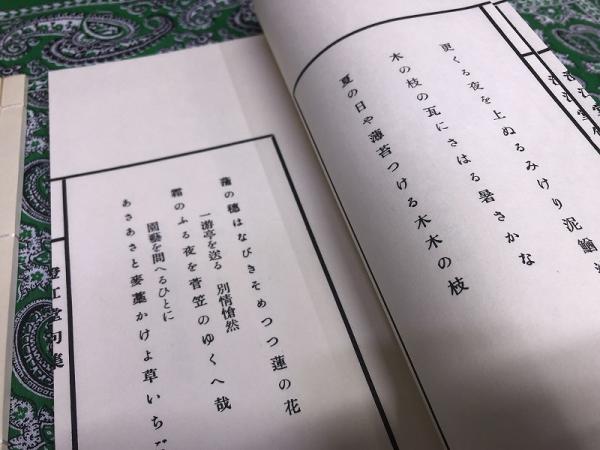 更くる夜を上ぬるみけり泥鰌
木の枝の瓦にさはる暑さかな
夏の日や薄苔つける木木の枝
蒲の穂はなびきそめつつ蓮の花
一游亭を送る 別情愴然
霜のふる夜を菅笠のゆくへ哉
園藝を問へるひとに
あさあさと麥藁かけよ草いち
澄江堂句集